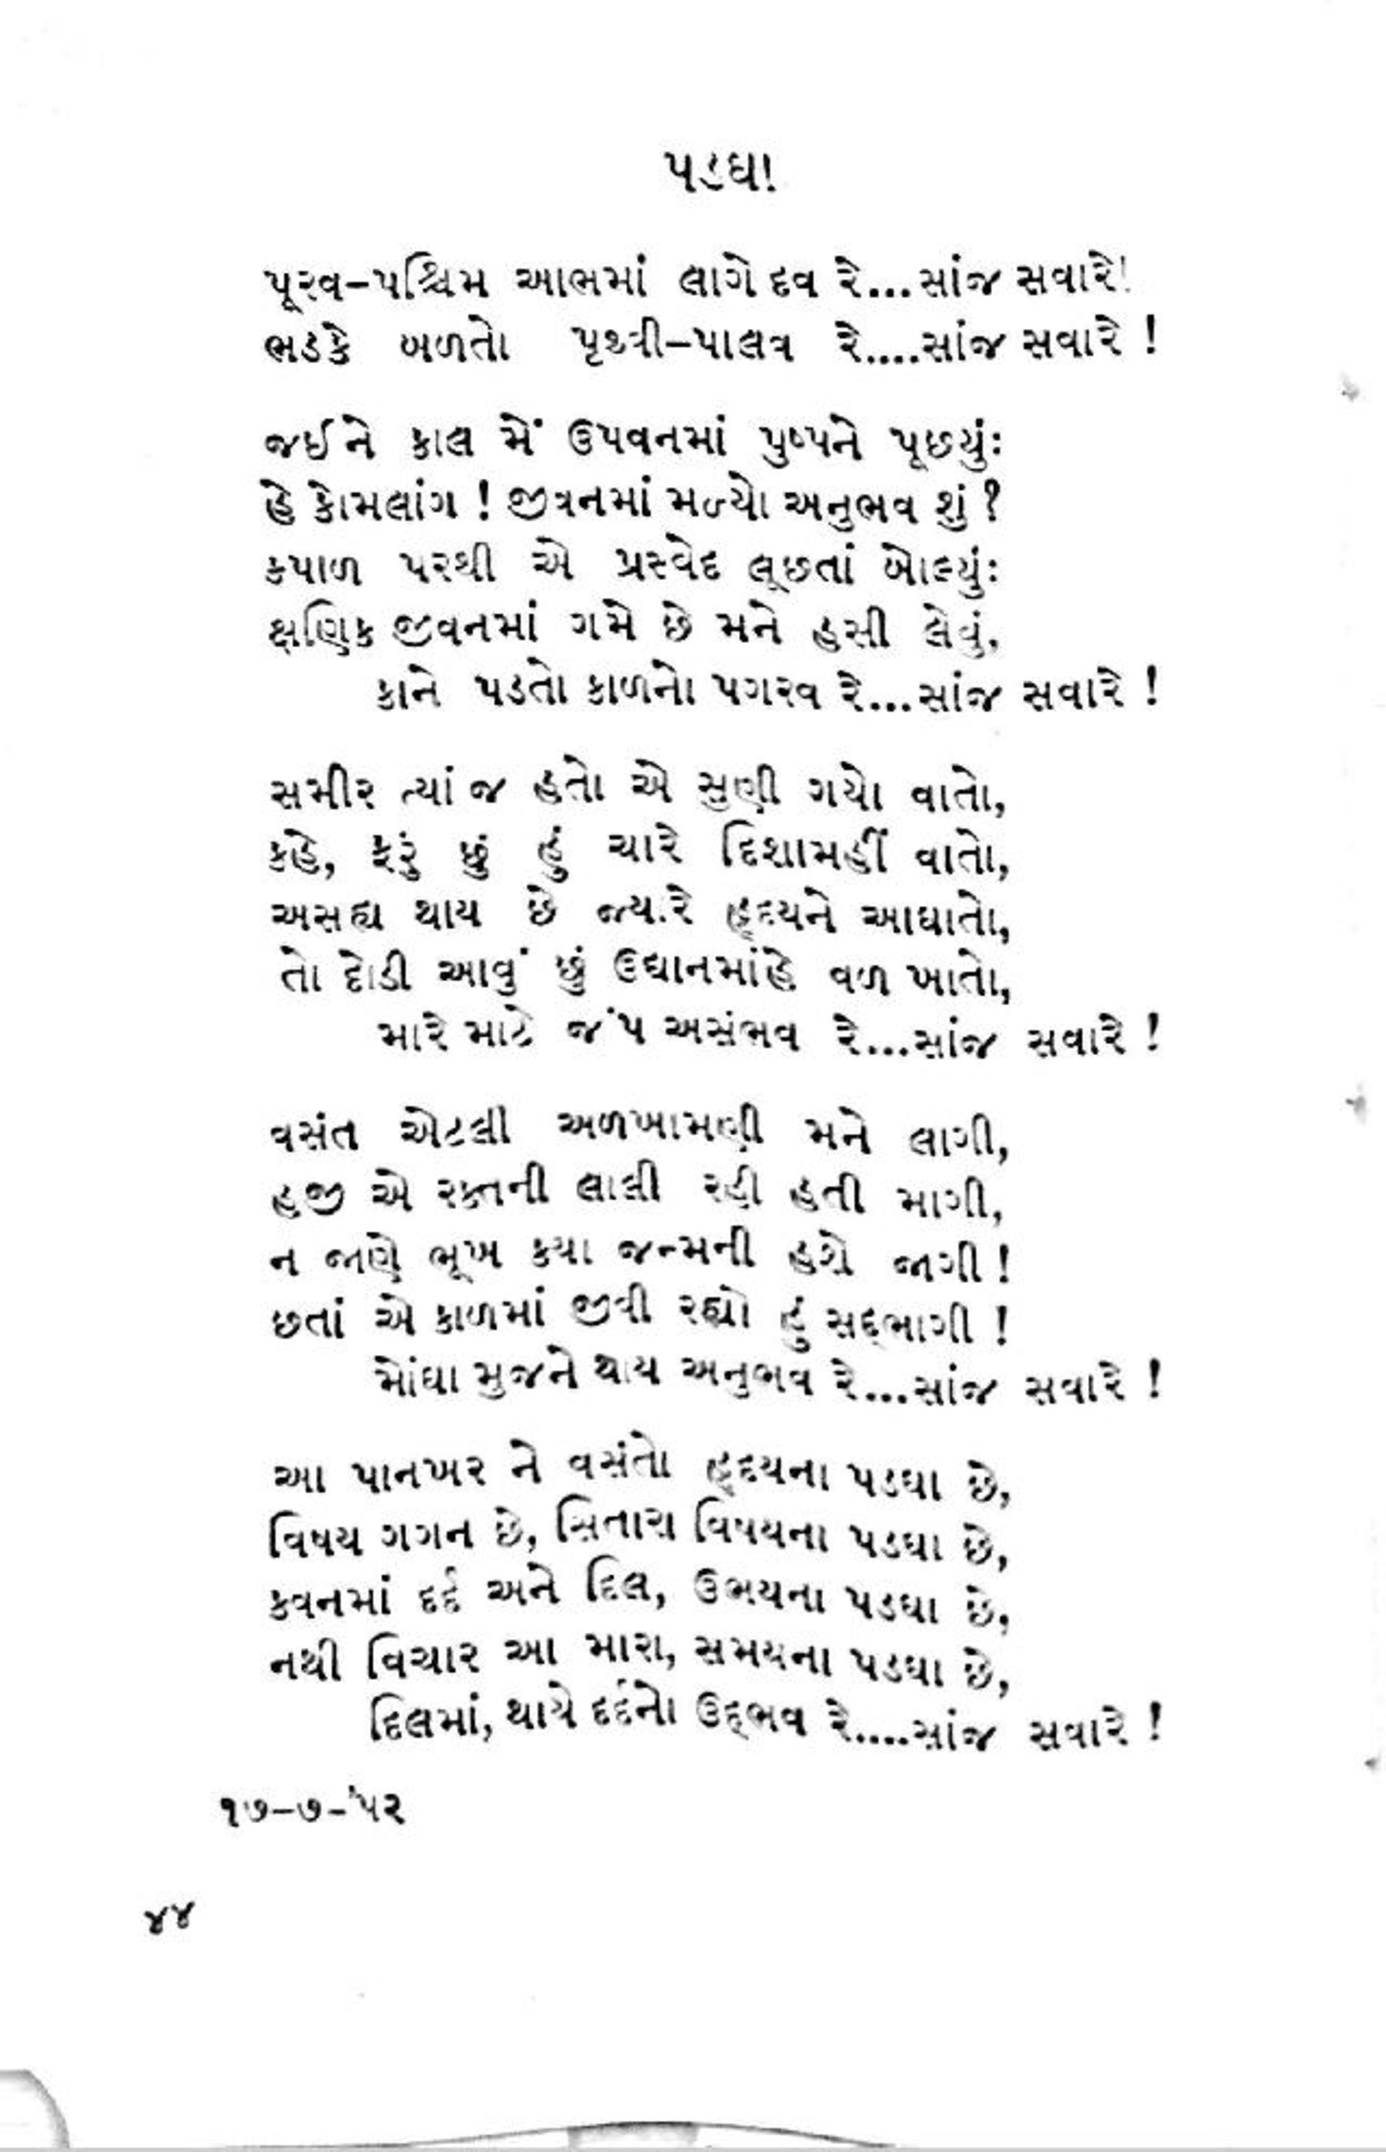 પડઘા
પૂરવ-પશ્ચિમ આભમાં લાગે દવ રે...સાંજ સવારે!
ભડકે બળતો પૃથ્વી-પાલવ રે....સાંજ સવારે !
જઈને કાલ મેં ઉપવનમાં પુષ્પને પૂછયુંઃ
હે કોમલાંગ ! જીવનમાં મળ્યો અનુભવ શું ?
કપાળ પરથી એ પ્રસ્વેદ લૂછતાં બોલ્યુંઃ
ક્ષણિક જીવનમાં ગમે છે મને હસી લેવું,
કાને પડતો કાળનો પગરવ રે...સાંજ સવારે !
સમીર ત્યાં જ હતો એ સુણી ગયો વાતો,
કહે, ફરું છું હું ચારે દિશામહીં વાતો,
અસહ્ય થાય છે જ્યારે હૃદયને આઘાતો,
તો દોડી આવું છું ઉદ્યાનમાંહે વળ ખાતો,
મારે માટે જંપ અસંભવ રે...સાંજ સવારે !
વસંત એટલી અળખામણી મને લાગી,
હજી એ રક્તની લાલી રહી હતી માગી,
ન જાણે ભૂખ કયા જન્મની હશે જાગી !
છતાં એ કાળમાં જીવી રહ્યો હું સદ્‌ભાગી !
મોંઘા મુજને થાય અનુભવ રે...સાંજ સવારે !
આ પાનખર ને વસંતો હૃદયના પડઘા છે,
વિષય ગગન છે, સિતારા વિષયના પડઘા છે,
કવનમાં દર્દ અને દિલ, ઉભયના પડઘા છે,
નથી વિચાર આ મારા, સમયના પડઘા છે,
દિલમાં, થાયે દર્દનો ઉદ્‌ભવ રે....સાંજ સવારે !
૧૭-૭-'૫૨
૪૪